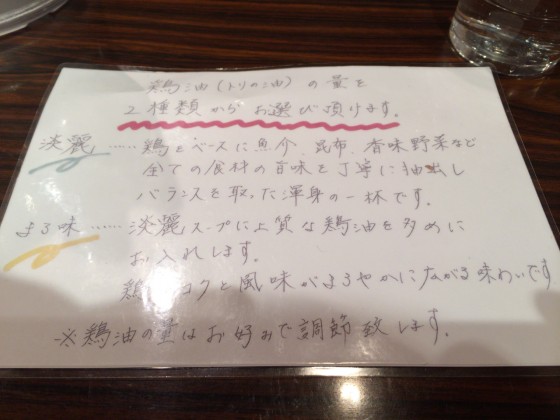 鶏油(トリの油)の量を
2種類からお選び頂けます。
淡麗……鶏をベースに魚介、昆布、香味野菜など
全ての食材の旨味を丁寧に抽出し
バランスを取った渾身の一杯です。
まろ味……淡麗スープに上質な鶏油を多めに
お入れします。
鶏 コクと風味がまろやかに広がる味わいです
※鶏油の量はお好みで調節致します。